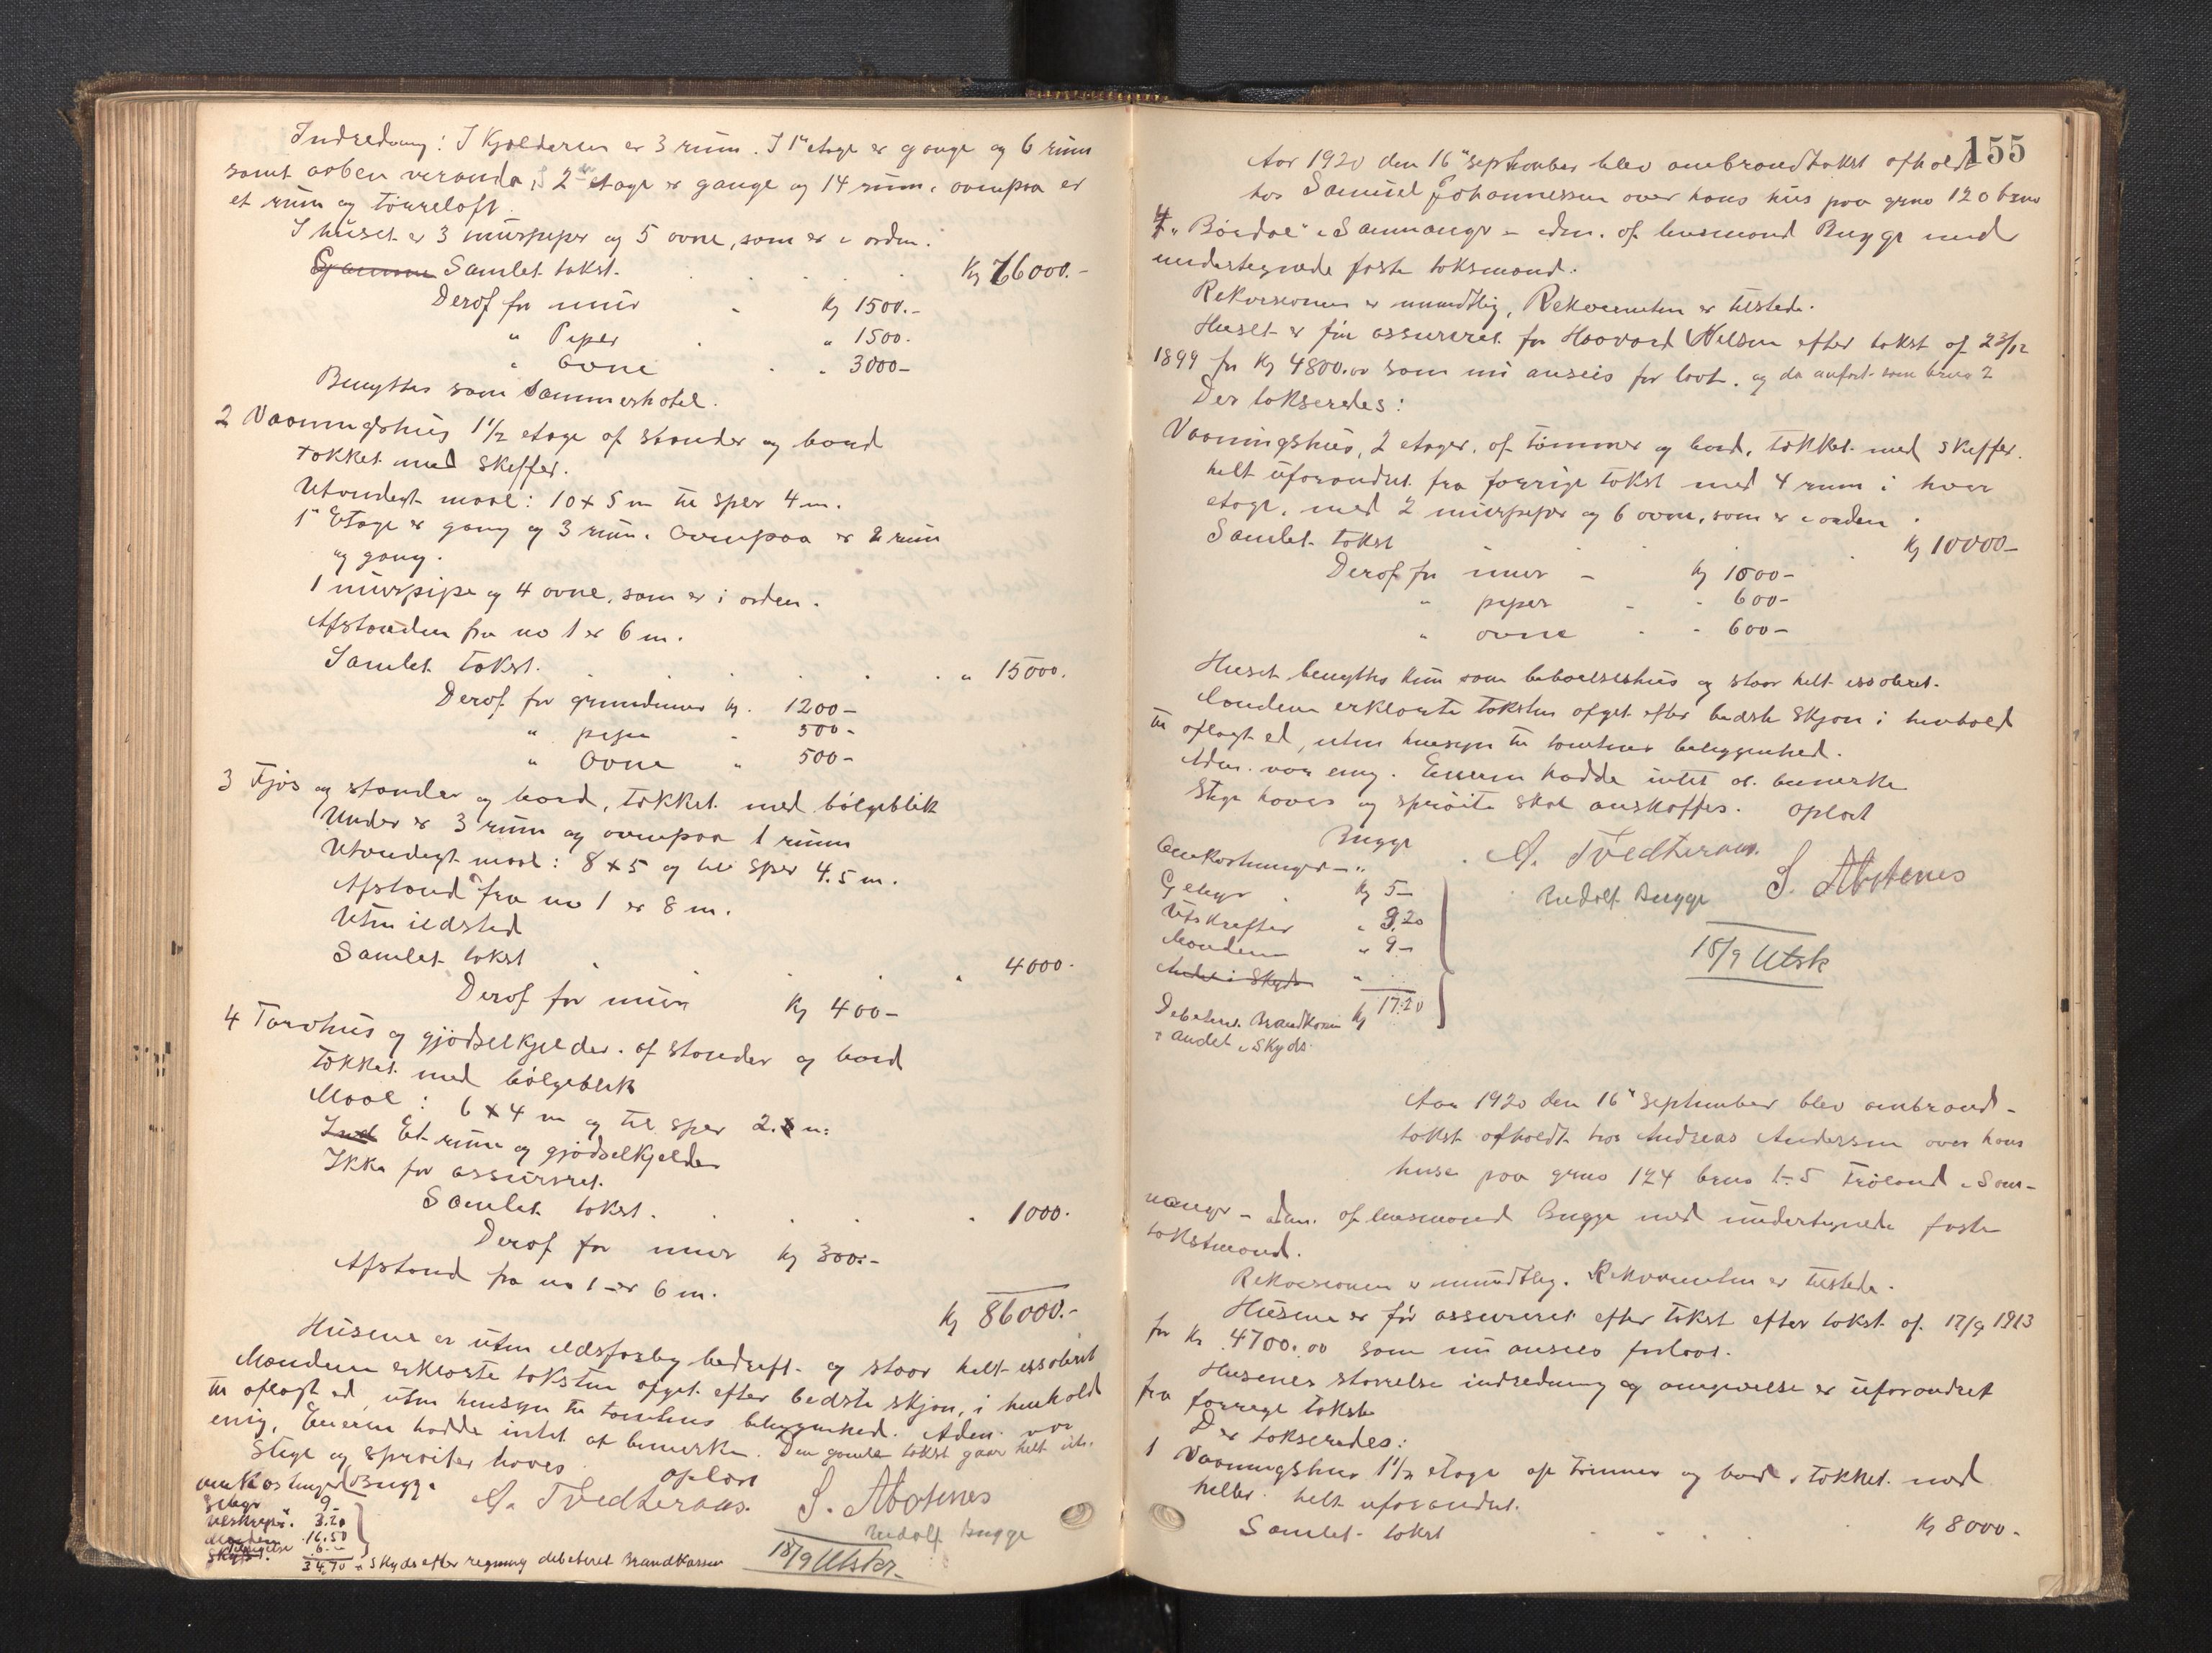 Indredning: I Kjælderen er 3 rum. I 1ste etage er gange og 6 rum
samt aaben veranda, I 2den etage er gange og 14 rum, ovenpaa er
et rum og tørreloft.
I huset er 3 murpiper og 5 ovne, som er i orden.
Samlet takst. Kr 66000.-
Deraf for mur Kr 1500.-
" Piper " 1500.
" Ovne " 3000-
Benyttes som Sommerhotel.
2 Vaaningshus 1 1/2 etage af stander og bord
tækket med skiffer.
Utvendigt maal: 10 x 5 m til spær 4 m.
1ste Etage er gang og 3 rum. Ovenpaa er 2 rum
og gang.
1 murpipe og 4 ovne, som er i orden.
Afstanden fra no 1 er 6 m.
Samlet takst. " 15000.
Deraf for grundmur kr. 1200-
" pipe " 500-
" Ovne " 500-
3 Fjøs og stander og bord, tækket med bølgeblik
Under er 3 rum og ovenpaa 1 rum
Utvendigt maal: 8 x 5 og til spær 4.5 m.
Afstand fra no 1 er 8 m.
Uten ildsted
Samlet takst " 4000.
Deraf for mur Kr 400-
4 Torvhus og gjødselkjelder. af stander og bord
tækket med bølgeblik
Maal: 6 x 4 m og til spær 2. m.
Ind Et rum og gjødselkjelder
Ikke før assureret.
Samlet takst. " 1000.
Deraf for mur Kr 300.-
Afstand fra no 1 er 6 m.
Kr 86000.-
Husene er uten ildsfarlig bedrift og staar helt issoleret
Mændene erklærte taksten afget efter bedste skjøn, i henhold
til aflagt ed, uten hensyn til tomtens beliggenhed. Adm. var
enig, Eieren hadde intet at bemerke. Den gamle takst gaar helt ut.
Stige og sprøiter haves Oplæst
omkostninger Bugge A. Tvedteraas. S. Abotnes
Gebyr 9- Rudolf Bugge
Utskrift. 3.20
Mænden 16.50 18/9 Utskr.
6.-
34.70 + Skyds efter regning debiteret Brandkassen
155
Aar 1920 den 16" September blev ombrandtakst afholdt
hos Samuel Johannessen over hans hus paa grno 120 brno
4 "Børdal" i Samnanger - adm. af lensmand Bugge med
undertegnede faste taksmænd.
Rekvisionen er mundtlig, Rekvirenten er tilstede.
Huset er før assureret for Haavard Nilsen efter takst af 23/12
1899 for Kr 4800.00 som nu ansees for lavt. og da anført som brno 2
Der takseredes:
Vaaningshus, 2 etager. af tømmer og bord, tækket med skiffer.
helt uforandret fra forrige takst med 4 rum i hver
etage, med 2 murpiper og 6 ovne, som er i orden.
Samlet takst Kr 10000-
Deraf for mur - Kr 1000-
" piper - " 600-
" ovne " 600-
Huset benyttes kun som beboelseshus og staar helt issoleret.
Mændene erklærte taksten afget efter bedste skjøn i henhold
til aflagt ed, uten hensyn til tomtens beliggenhed.
Adm. var enig. Eieren hadde intet at bemerke
Stige haves og sprøite skal anskaffes. Oplæst
Bugge A. Tvedteraas.
Omkostninger - " Rudolf Bugge S. Abotnes
Gebyr Kr 5-
Utskrifter " 3.20
Mænden " 9- 18/9 Utsk
Andel i Skyds "
Kr 17.20
Debiteres Brandkassen
+ andel i Skyds.
Aar 1920 den 16" September blev ombrand-
takst afholdt hos Andreas Andersen over hans
huse paa grno 124 brno 1-5 Frøland i Sam-
nanger - adm. af lensmand Bugge med undertegnede faste
takstmænd.
Rekvisionen er mundtlig. Rekvirenten er tilstede.
Husene er før assureret efter takst efter takst af. 17/9 1913
for Kr 4700.00 som nu ansees for lavt.
Husenes størrelse indredning og omgivelse er uforandret
fra forrige takst
Der takseredes:
1 Vaaningshus 1 1/2 etage af tømmer og bord, tækket med
heller helt uforandret.
Samlet takst Kr 8000-